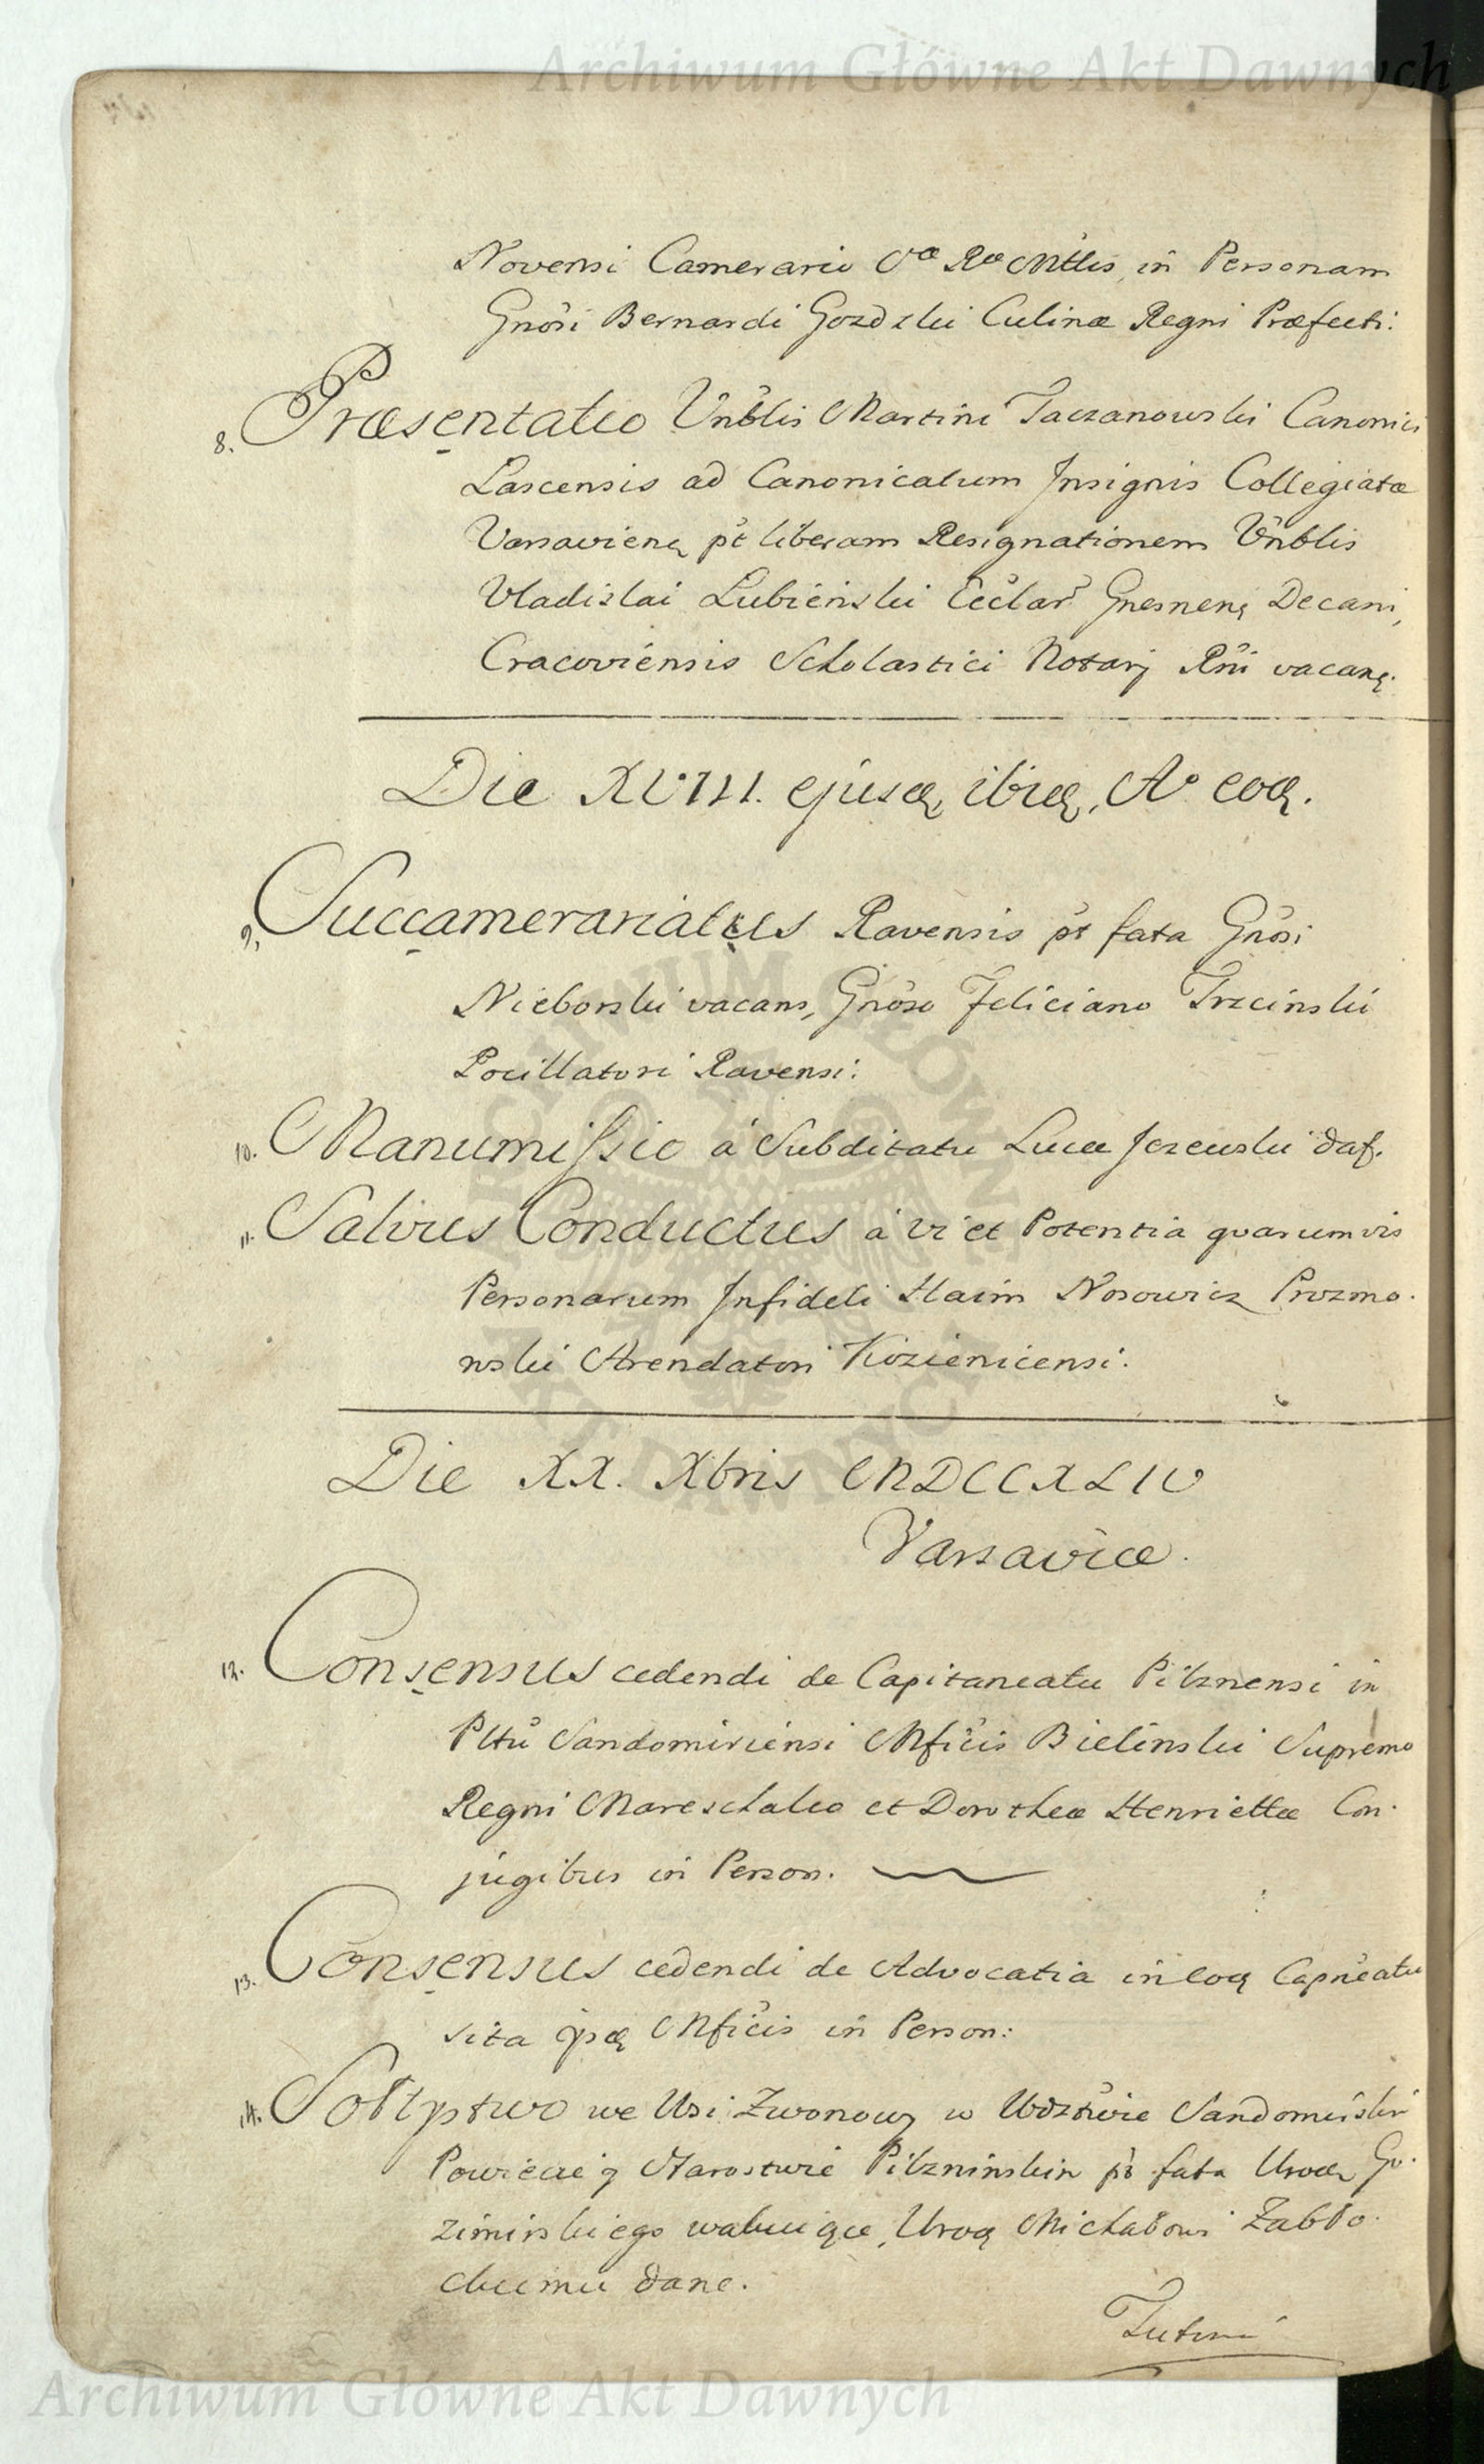 Archiwum Główne Akt Dawnych
Novensi Camerario Sæ Ræ Mttis, in Personam
Gnosi Bernardi Gozdzki Culinæ Regni Præfecti:
8. Præsentatio Vnblis Martini Taczanowski Canonici
Lascensis ad Canonicatum Insignis Collegiatæ
Varsaviens pt liberam Resignationem Vnblis
Vladislai Lubienski Ecclar Gnesnens Decani,
Cracoviensis Scholastici Notarij Rni vacans.
Die XVIII. ejusd, ibid, Ao eod.
9. Succamerariatus Ravensis pt fata Gnosi
Nieborski vacans, Gnoso Feliciano Trzcinski
Pocillatori Ravensi:
10. Manumissio à Subditatu Lucæ Jezewski daf.
11. Salvus Conductus à vi et Potentia quarumvis
Personarum Infideli Haim Nosowicz Prozmo-
wski Arendatori Kozienicensi.
Die XX. Xbris MDCCXLIV
Varsaviæ.
12. Consensus cedendi de Capitaneatu Pilznensi in
Pltu Sandomiriensi Mficis Bielinski Supremo
Regni Mareschalco et Dorotheæ Henriettæ Con-
jugibus in Person.
13. Consensus cedendi de Advocatia in eod Capneatu
sita ipsd Mficis in Person:
14. Sołtystwo we Wsi Zwonowy w Wdztwie Sandomirskim
Powiecie y Starostwie Pilzninskim pò fata Urod Go-
zimirskiego wakuiące, Urod Michałowi Zabło-
ckiemu dane.
ARCHIWUM GŁÓWNE AKT DAWNYCH
Archiwum Główne Akt Dawnych